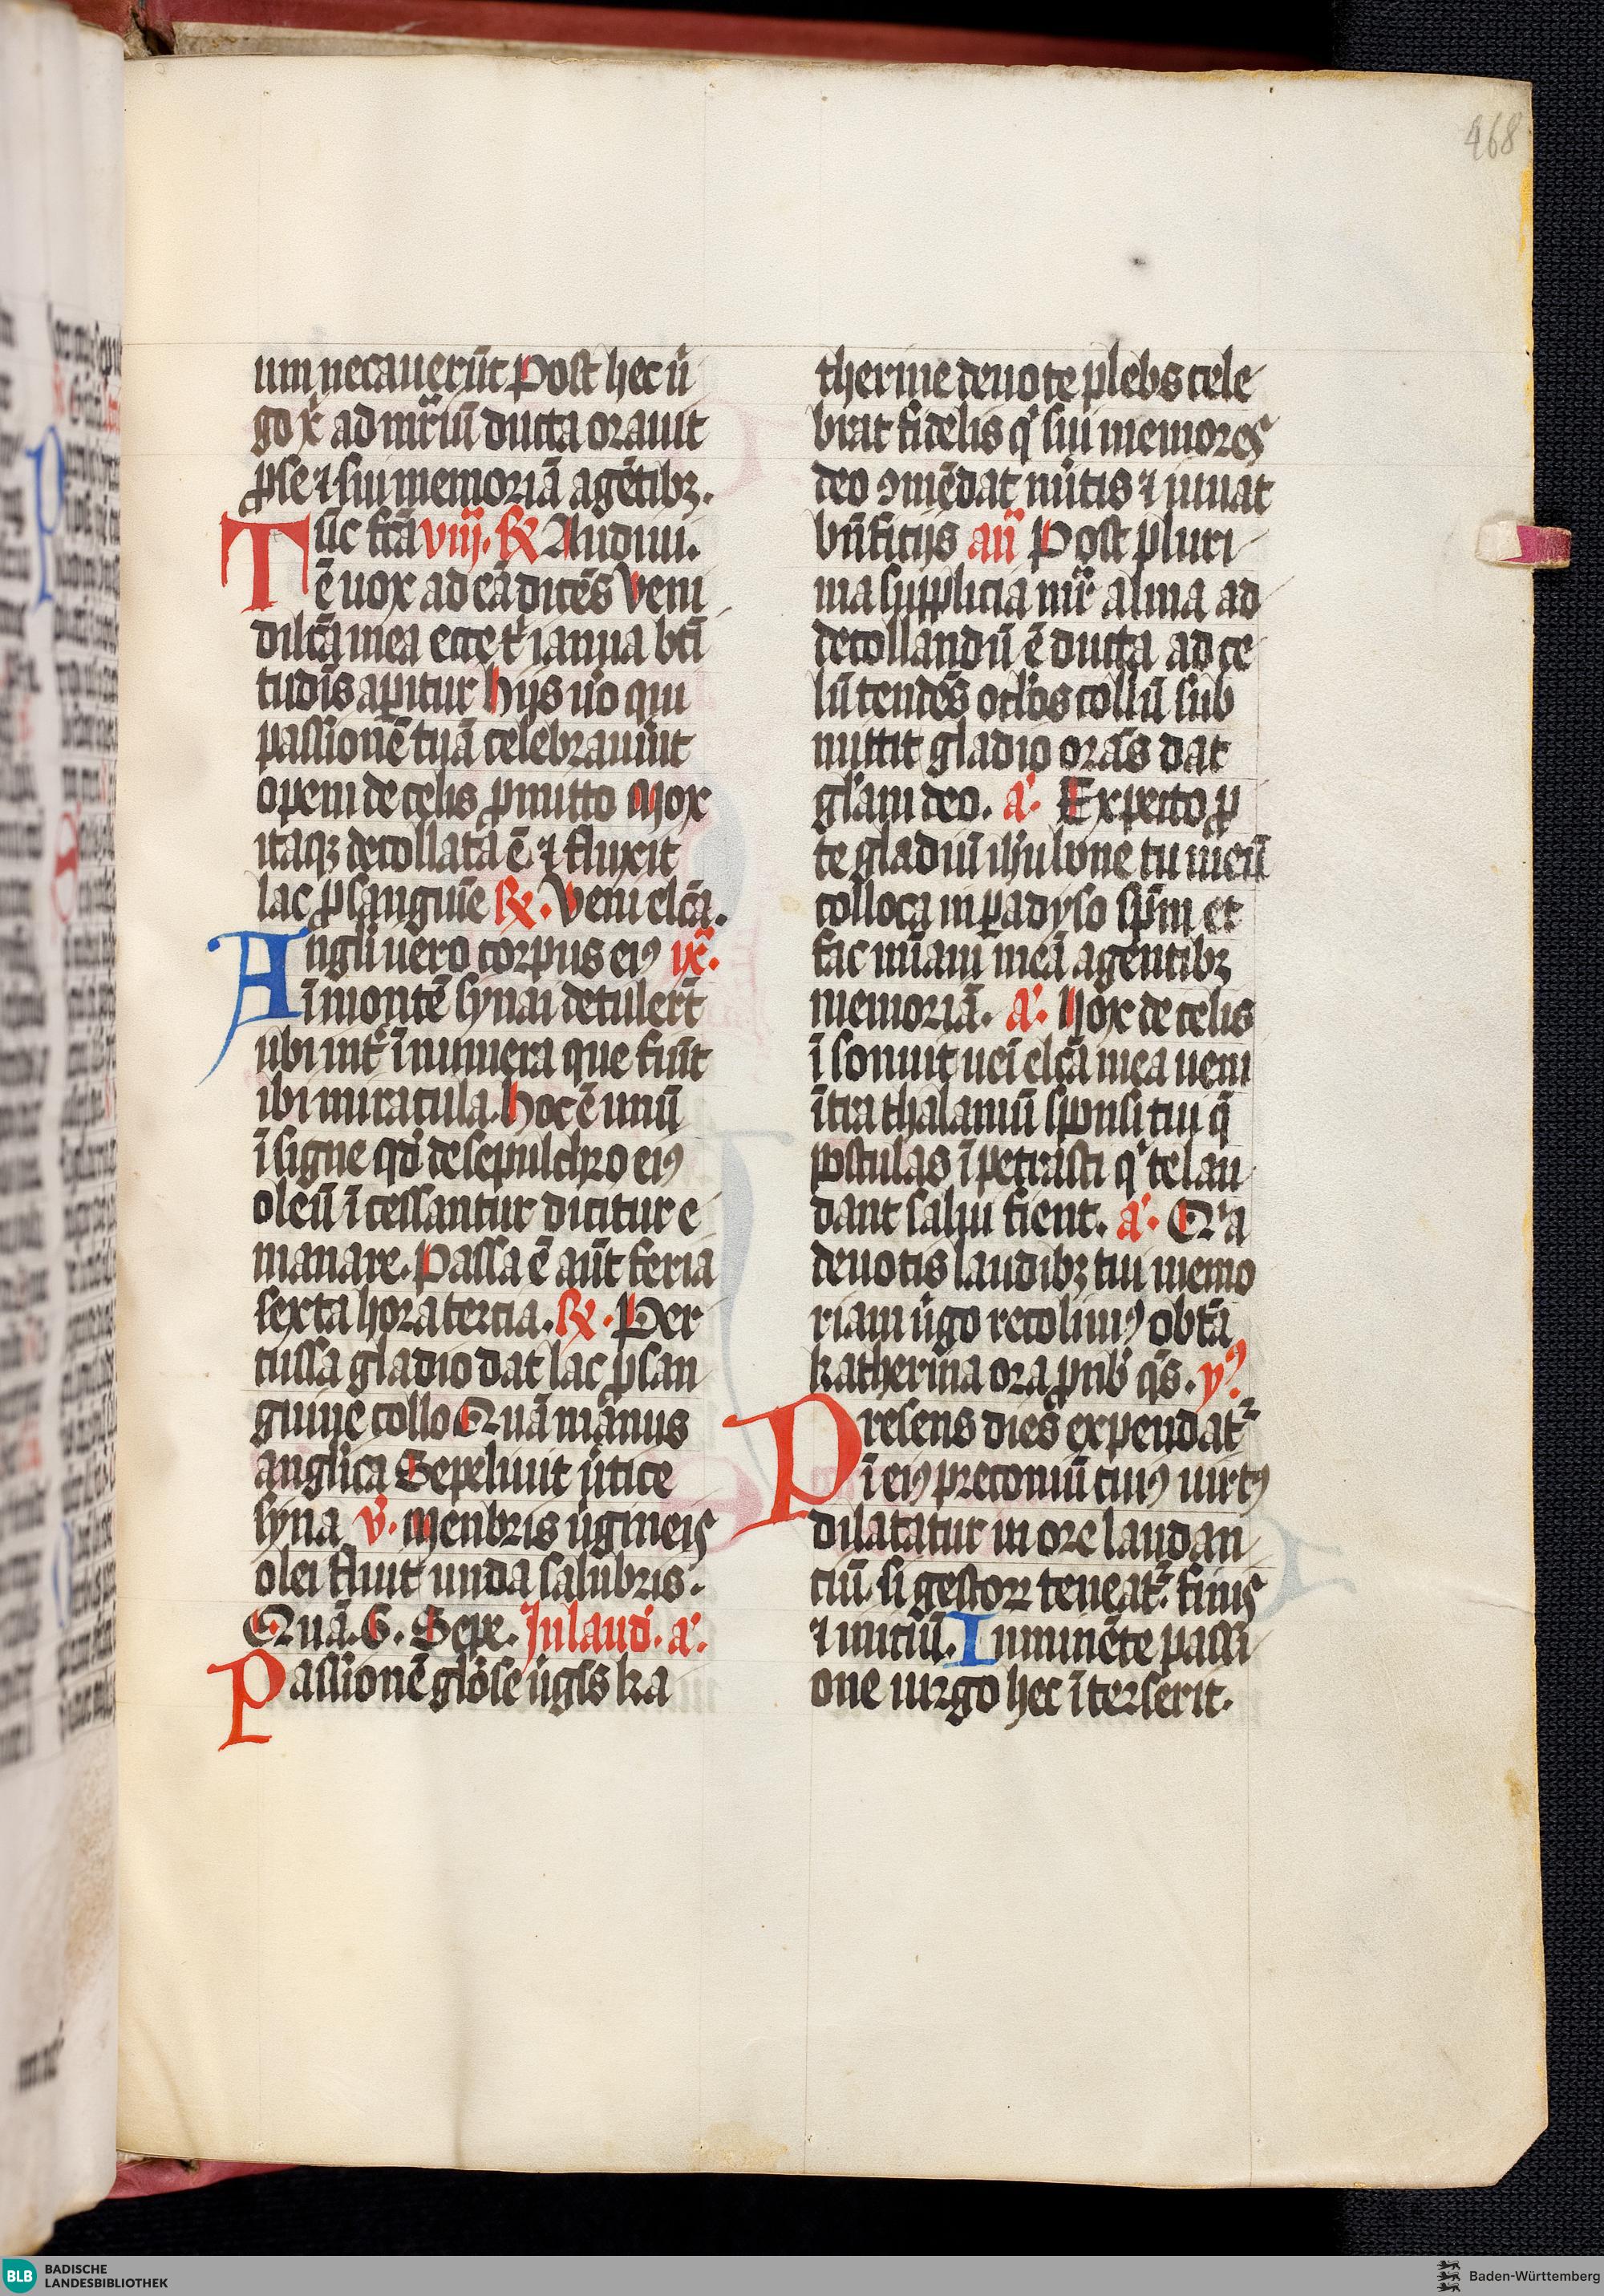 468
um necauerūt Post hec ů
go xͥ ad mr̄iū ducta orauit
ꝓ se ⁊ sui memoriā agētibꝫ.
Tūc fc̄a viij. ℟ Audiui.
ē uox ad eā dicēs Veni
dilc̄a mea ecce tͥ ianua bt̄i
tudīs apitur hijs ůo qui
passionē tuā celebrauīt
opem de celis ꝓmitto Mox
itaqꝫ decollata ē ⁊ fluxit
lac ꝓ sanguīe ℟. Veni elc̄a.
Angli uero corpus eiꝰ ix̄.
ī montē synai detuler̄t
ubi int̾ īnumera que fiūt
ibi miracula. hoc ē unū
īsigne qd̾ de sepulchro eiꝰ
oleū īcessantur dicitur e
manare. Passa ē aūt feria
sexta hora tercia. ℟. Per
cussa gladio dat lac ꝓ san
guine collo Quā manus
anglica Sepeliuit ůtice
syna V. Menbris ůgineis
olei fluit unda salubris.
Quā. G. Sepe. In laud̾. aͣ.
Passionē gl̄ose ůgīs ka
therine deuote plebs cele
brat fidelis qͥ sui memores
deo ꝯmēdat mūtis ⁊ iuuat
bn̄ficijs an̄ Post pluri
ma supplicia mr̄ alma ad
decollandū ē ducta ad ce
lū tendēs oc̄los collū sub
mittit gladio orās dat
gl̄am deo. aͣ. Expecto ꝓ
te gladiū ih̄u bone tu meū
colloca in ꝑadyso sp̄m et
fac mīam meā agentibꝫ
memoriā. aͣ. Vox de celis
īsonuit uēi elc̄a mea ueni
ītra thalamū sponsi tui q̄
postulas īpetrasti qͥ te lau
dant salui fient. aͣ. Qͥa
deuotis laudibꝫ tui memo
riam ůgo recolimꝰ obt̄a
katherina ora ꝓ nob̾ qs̄. yꝰ.
Presens dies expendat᷑
ī eiꝰ preconiū cuiꝰ uirtꝰ
dilatatur in ore laudan
ciū. si gestorꝝ teneat᷑ finis
⁊ iniciū. Inminēte passi
one uirgo hec īterserit.
BLB BADISCHE
LANDESBIBLIOTHEK
Baden-Württemberg